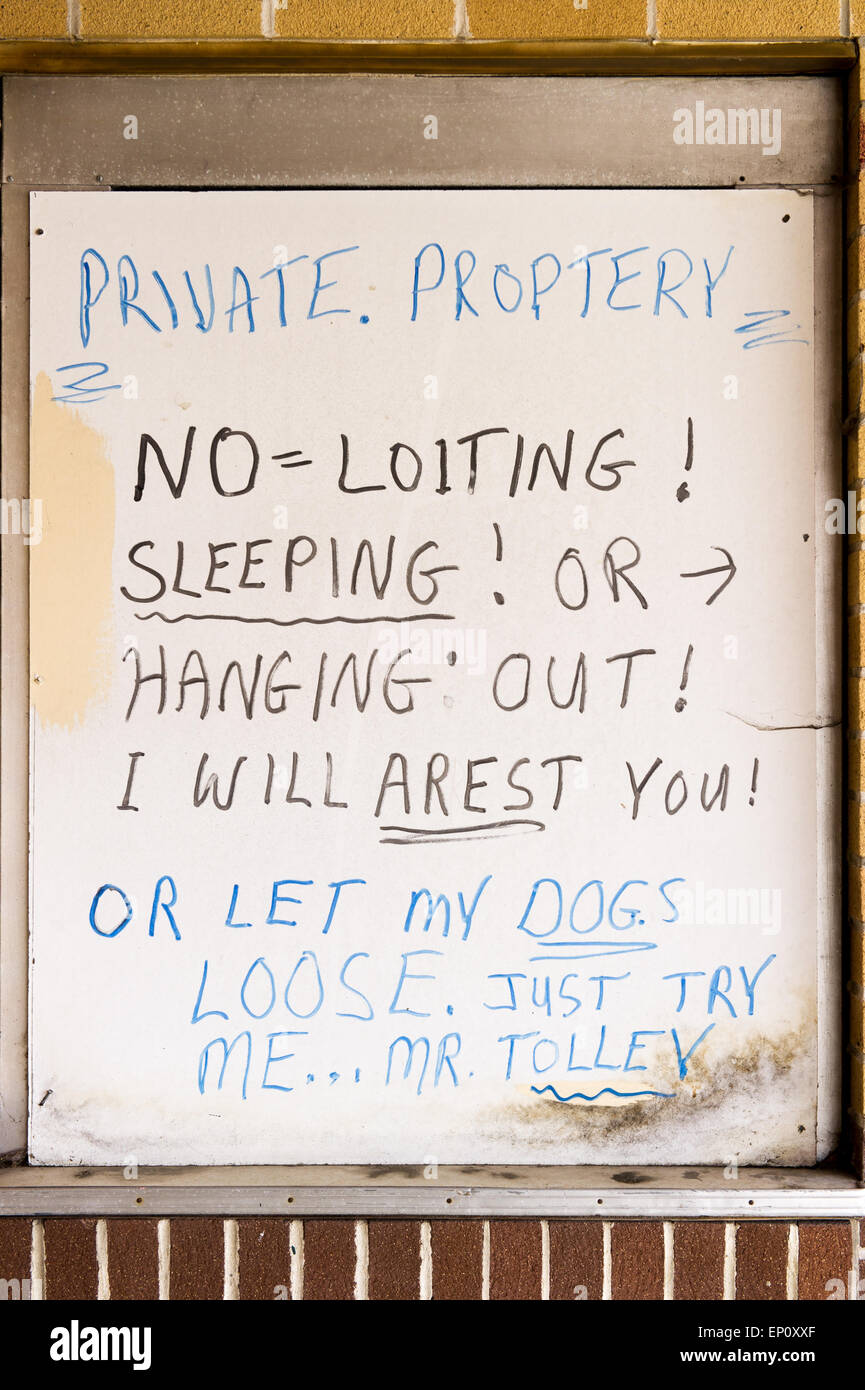 PRIVATE. PROPTERY
NO = LOITING!
SLEEPING! OR →
HANGING: OUT!
I WILL AREST YOU!
OR LET MY DOG.S
LOOSE. JUST TRY
ME... MR. TOLLEY
alamy
Image ID: EP0XXF
www.alamy.com